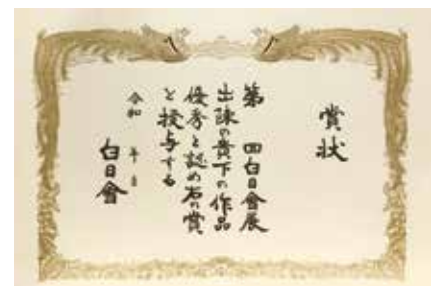 賞状
第　回白日會展
出陳の貴下の作品
優秀と認め右の賞
を授与する
令和　年　月
白日會